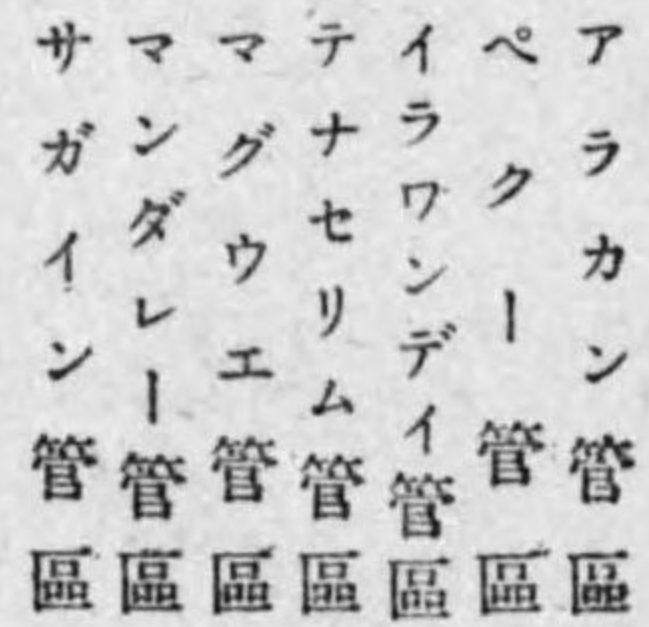 アラカン管區
ペクー管區
イラワンデイ管區
テナセリム管區
マグウエ管區
マンダレー管區
サガイン管區